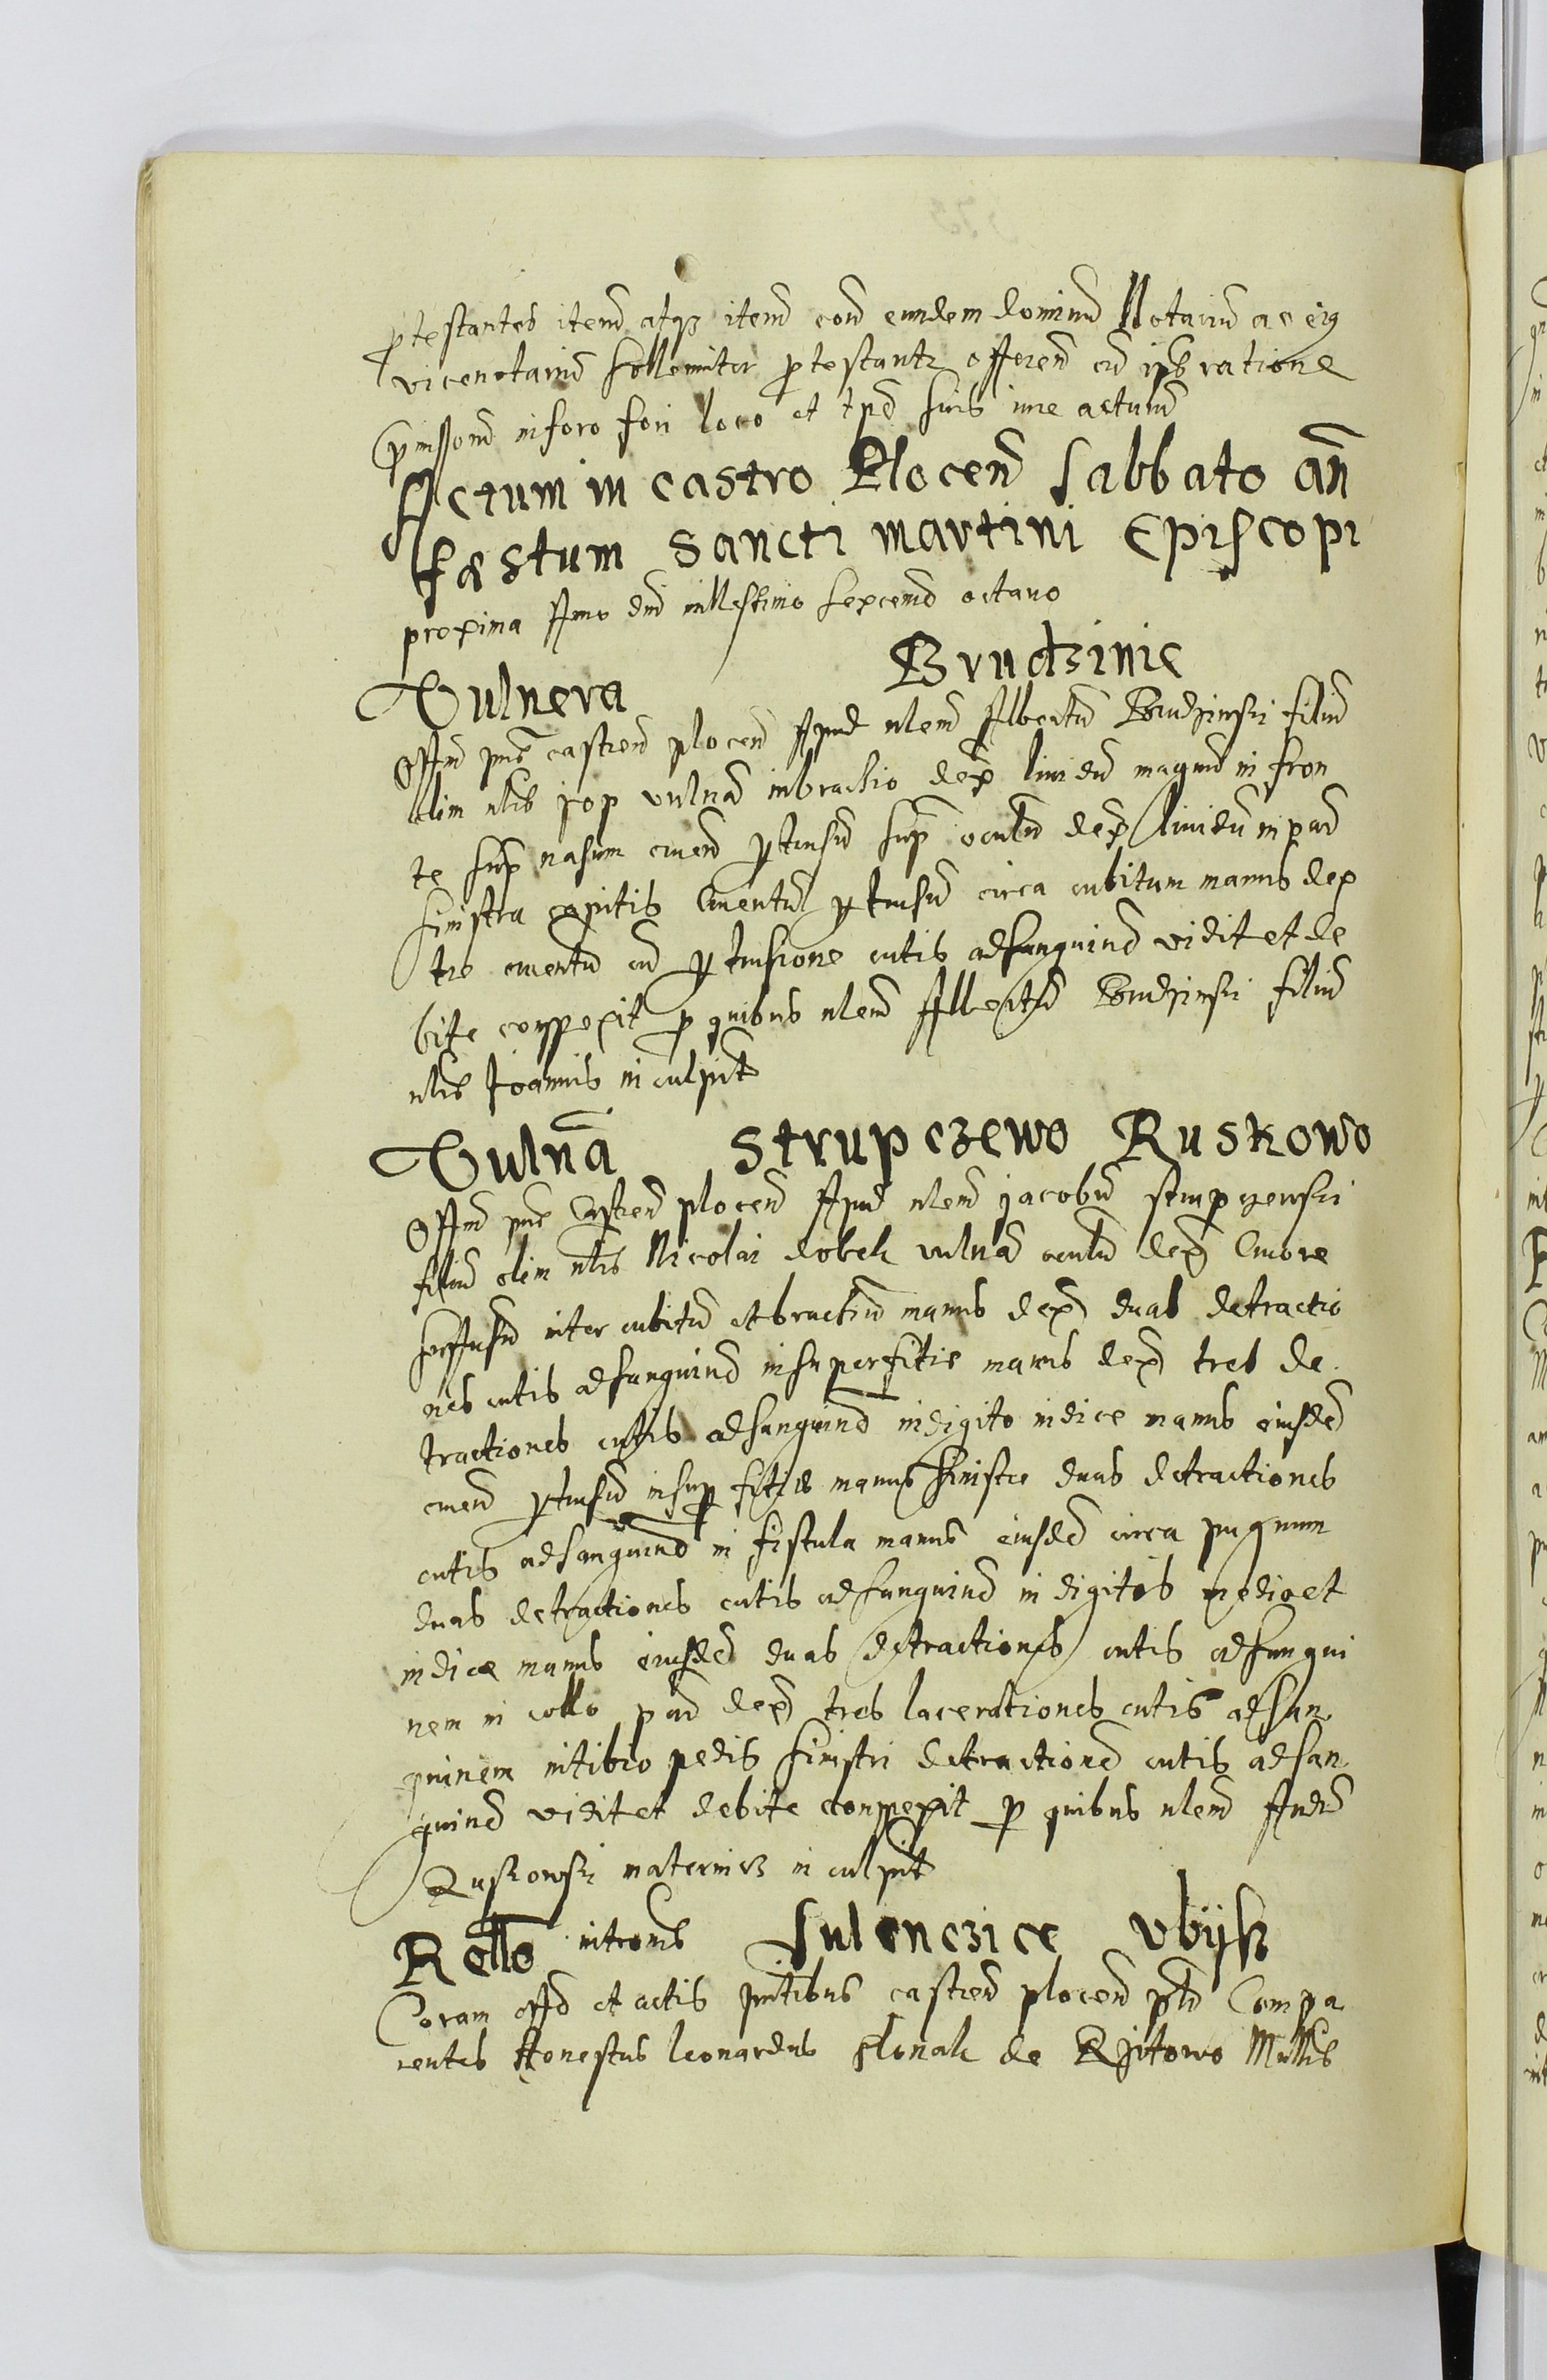 protestantes item atq3 item con eundem dominu Notariu ac eiq
vicenotariu sollemniter protestantr offeren cu ips ratione
pmissoru in foro fori loco et tpe suis iure acturu
Actum in castro Plocen Sabbato an
fæstum Sancti martini Episcopi
proxima Anno dni millesimo sexcenmo octauo
Vulnera Brudzinie
Offm pns castren plocen Apud nlem Albertu Brudzinski filiu
olim nlis Jop vulna in brachio dex liuidu magnu in fron
te sup nasum cruen ptusu sup oculu dex liuidu in par
sinistra capitis Cruentu ptusu circa cubitum manus dex
tre cruentu cu ptusione cutis ad sanguine vidit et de
bite conspexit p quibus nlem Albertu Brudzinski filiu
nlis Joannis inculpit
Vulna Strupczewo Ruskowo
Offm pns Castren plocen Apud nlem jacobu strupczewski
filiu olim nlis Nicolai dobek vulna oculu dex Cruore
suffusu inter cubitu et brachiu manus dex duas detractio
nes cutis ad sanguine in superfitie manus dex tres de
tractiones cutis ad sanguine in digito indice manus eiusde
cruen ptusu in sup fitie manus sinistre duas detractiones
cutis ad sanguine in fistula manus eiusde circa pugnum
duas detractiones cutis ad sanguine in digitis medio et
indice manus eiusde duas detractiones cutis ad sangui
nem in collo par dex tres lacerationes cutis ad san
guinem in tibio pedis sinistri detractione cutis ad san
guine vidit et debite conspexit p quibus nlem Andr
Ruskowski inculpit
Rello introms Sulenczice
Coram offo et actis pntibus castren plocen psl Compa
rentes Honestus leonardus slonak de Rzitowo Mnlis